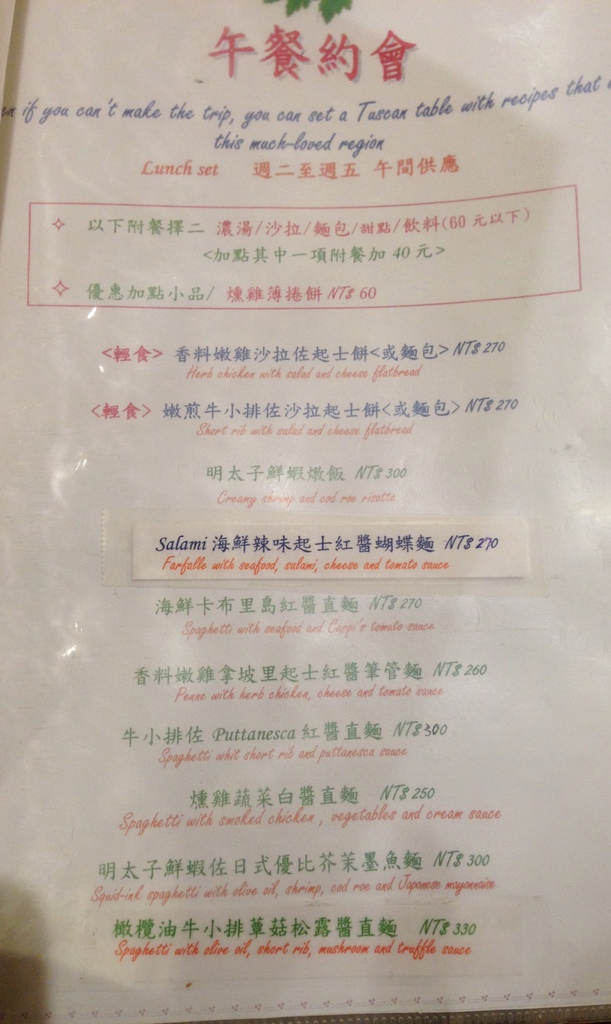 午餐約會
if you can't make the trip, you can set a Tuscan table with recipes that
this much-loved region
Lunch set 週二至週五 午間供應
✧ 以下附餐擇二 濃湯/沙拉/麵包/甜點/飲料(60 元以下)
<加點其中一項附餐加 40 元>
✧ 優惠加點小品/ 燻雞薄捲餅 NT$ 60
<輕食> 香料嫩雞沙拉佐起士餅<或麵包> NT$ 270
Herb chicken with salad and cheese flatbread
<輕食> 嫩煎牛小排佐沙拉起士餅<或麵包> NT$ 270
Short rib with salad and cheese flatbread
明太子鮮蝦燉飯 NT$ 300
Creamy shrimp and cod roe risotto
Salami 海鮮辣味起士紅醬蝴蝶麵 NT$ 270
Farfalle with seafood, salami, cheese and tomato sauce
海鮮卡布里島紅醬直麵 NT$ 270
Spaghetti with seafood and Carpi's tomato sauce
香料嫩雞拿坡里起士紅醬筆管麵 NT$ 260
Penne with herb chicken, cheese and tomato sauce
牛小排佐 Puttanesca 紅醬直麵 NT$300
Spaghetti whit short rib and puttanesca sauce
燻雞蔬菜白醬直麵 NT$ 250
Spaghetti with smoked chicken , vegetables and cream sauce
明太子鮮蝦佐日式優比芥茉墨魚麵 NT$ 300
Squid-ink spaghetti with olive oil, shrimp, cod roe and Japanese mayonnaise
橄欖油牛小排蕈菇松露醬直麵 NT$ 330
Spaghetti with olive oil, short rib, mushroom and truffle sauce